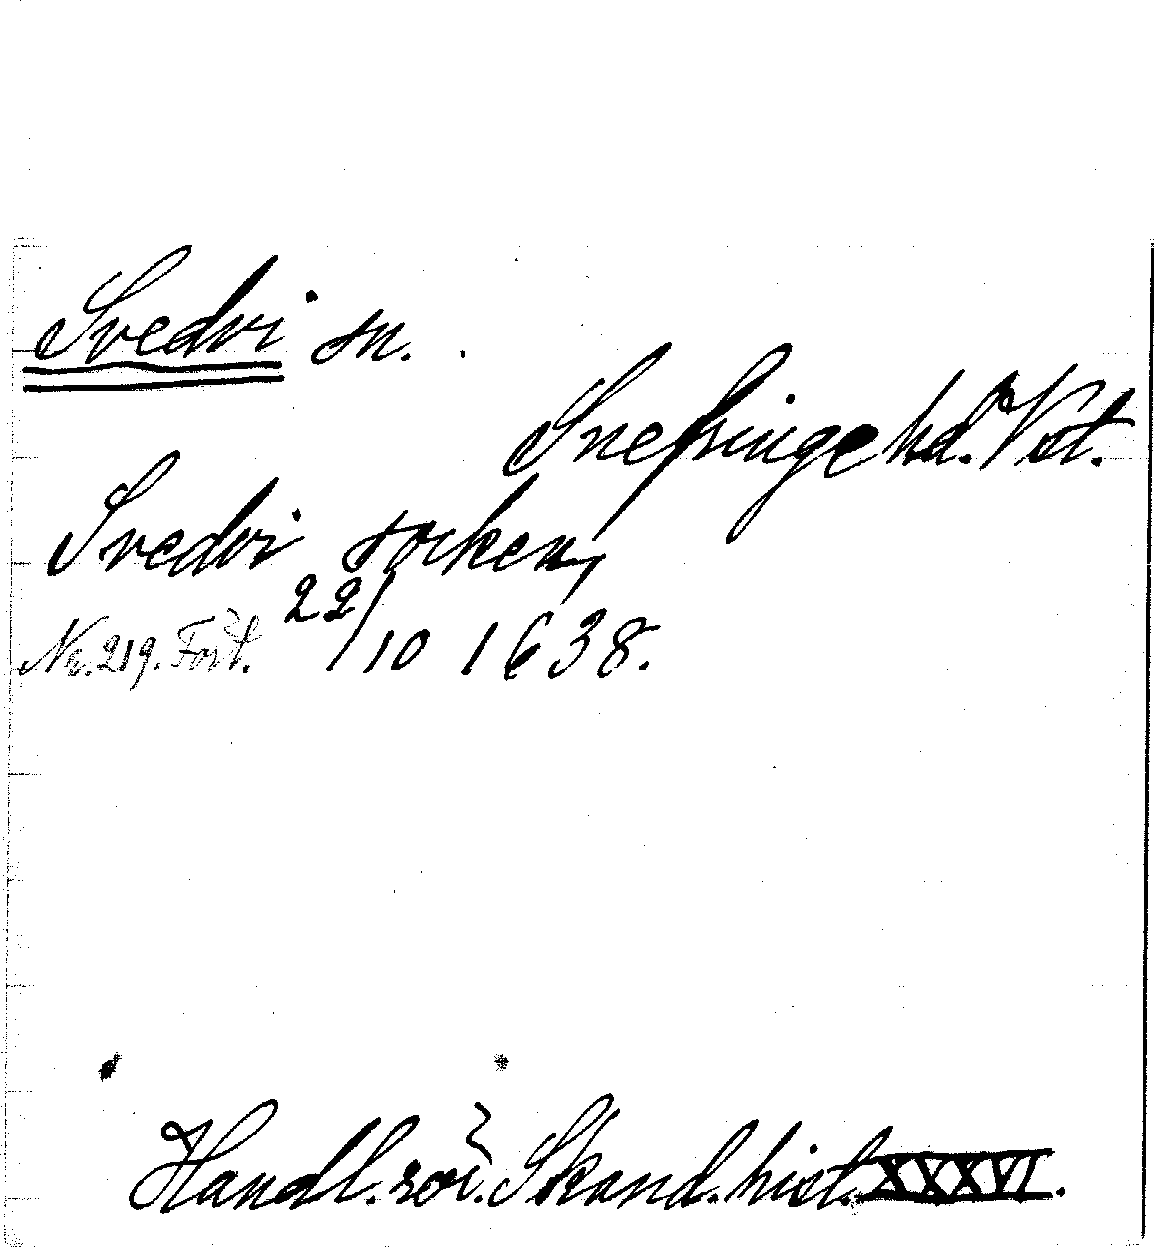 Svedvi sn.
Snefringe hd. Vstl.
Svedvi socken,
Nr. 219. Fört. 22/10 1638.
Handl. rör. Skand. hist. XXXVI.